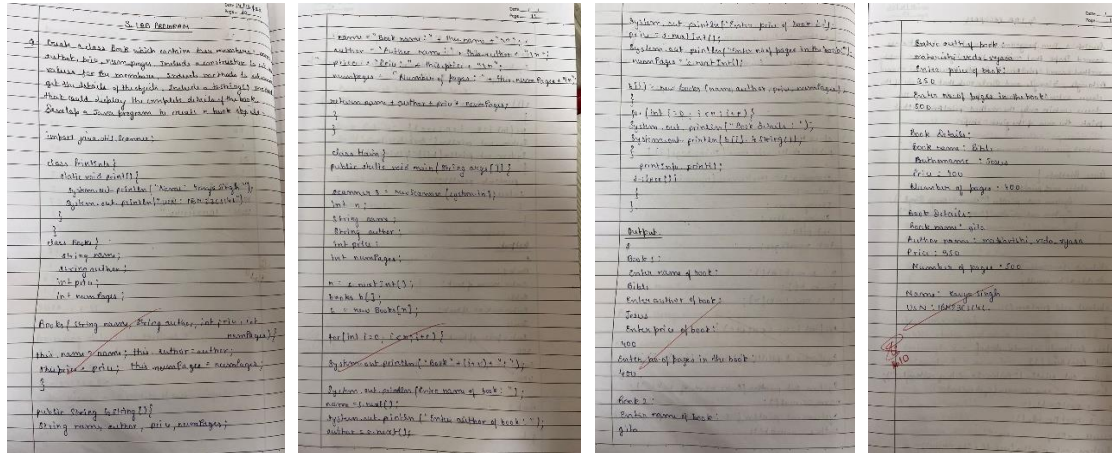 3. LAB PROGRAM
Q. Create a class Book which contains four members: name,
author, price, num-pages. Include a constructor to set the
values for the members. Include methods to set and
get the details of the objects. Include a toString() method
that could display the complete details of the book.
Develop a Java program to create n book objects.
import java.util.Scanner;
class PrintInfo {
static void print() {
System.out.println("Name:
System.out.println("USN:
}
}
class Books {
String name;
String author;
int price;
int numPages;
Books (String name, String author, int price, int
numPages) {
this.name = name; this.author = author;
this.price = price; this.numPages = numPages;
}
public String toString() {
String name, author, price, numPages;
name = "Book name:" + this.name + "\n";
author = "Author name:" + this.author + "\n";
price = "Price:" + this.price + "\n";
numPages = "Number of pages:" + this.numPages + "\n";
return name + author + price + numPages;
}
}
class Main {
public static void main(String args[]) {
Scanner s = new Scanner (System.in);
int n;
String name;
String author;
int price;
int numPages;
n = s.nextInt();
Books b[];
b = new Books[n];
for(int i=0; i<n; i++) {
System.out.println("Book" + (i+1) + ":");
System.out.println("Enter name of book:");
name = s.next();
System.out.println("Enter author of book:");
author = s.next();
System.out.println("Enter price of book:");
price = s.nextInt();
System.out.println("Enter no of pages in the book:");
numPages = s.nextInt();
b[i] = new Books (name, author, price, numPages);
}
for (int i=0; i<n; i++) {
System.out.println("Book Details:");
System.out.println(b[i].toString());
}
s.close();
}
Output
2
Book 1:
Enter name of book:
Bible
Enter author of book:
Jesus
Enter price of book:
400
Enter no of pages in the book:
400
Book 2:
Enter name of book:
gita
Enter author of book:
maharishi veda vyasa
Enter price of book:
350
Enter no of pages in the book:
500
Book Details:
Book name: Bible
Author name: Jesus
Price: 400
Number of pages: 400
Book Details:
Book name: gita
Author name: maharishi veda vyasa
Price: 350
Number of pages: 500
Name: Singh
USN:
10